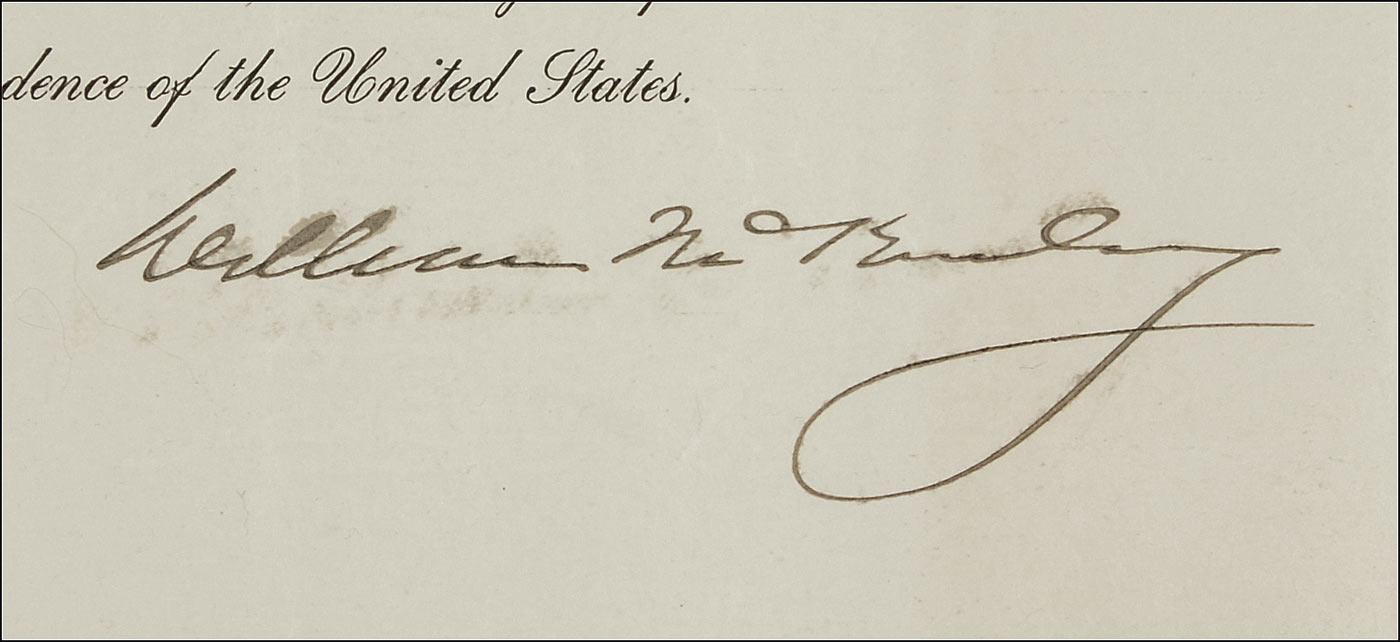 dence of the United States.
William McKinley